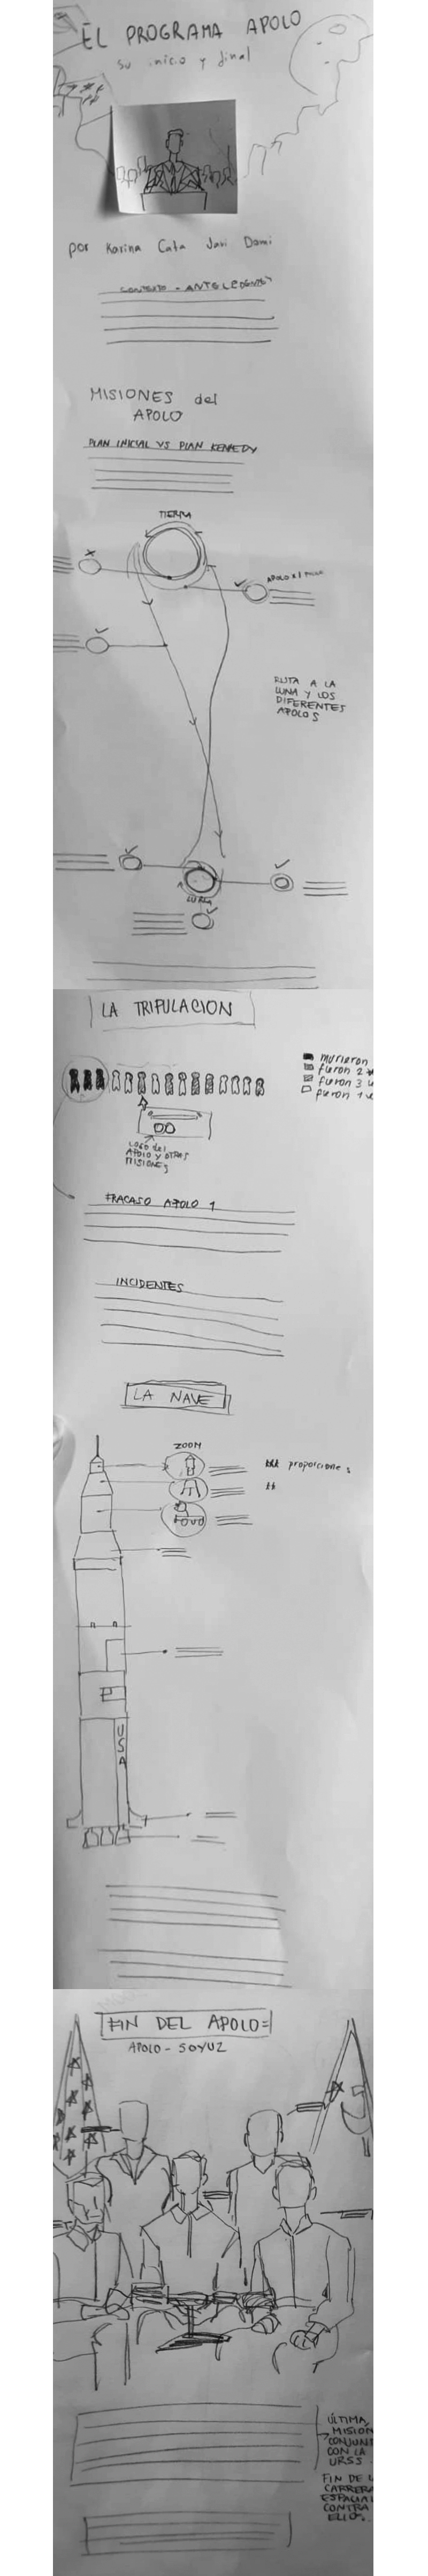 EL PROGRAMA APOLO
su inicio y final
por Karina Cata Javi Domi
CONTEXTO - ANTECEDENTES
MISIONES del
APOLO
PLAN INICIAL VS PLAN KENEDY
TIERRA
APOLO
RUTA A LA
LUNA Y LOS
DIFERENTES
APOLOS
LUNA
LA TRIPULACION
murieron
fueron 2
fueron 3
fueron 1
LOGO del
APOLO Y OTRAS
MISIONES
FRACASO APOLO 1
INCIDENTES
LA NAVE
ZOOM
proporciones
USA
FIN DEL APOLO=
APOLO - SOYUZ
ÚLTIMA
MISIÓN
CONJUN
CON LA
URSS.
FIN DE L
CARRERA
ESPACIAL
CONTRA
ELLOS.